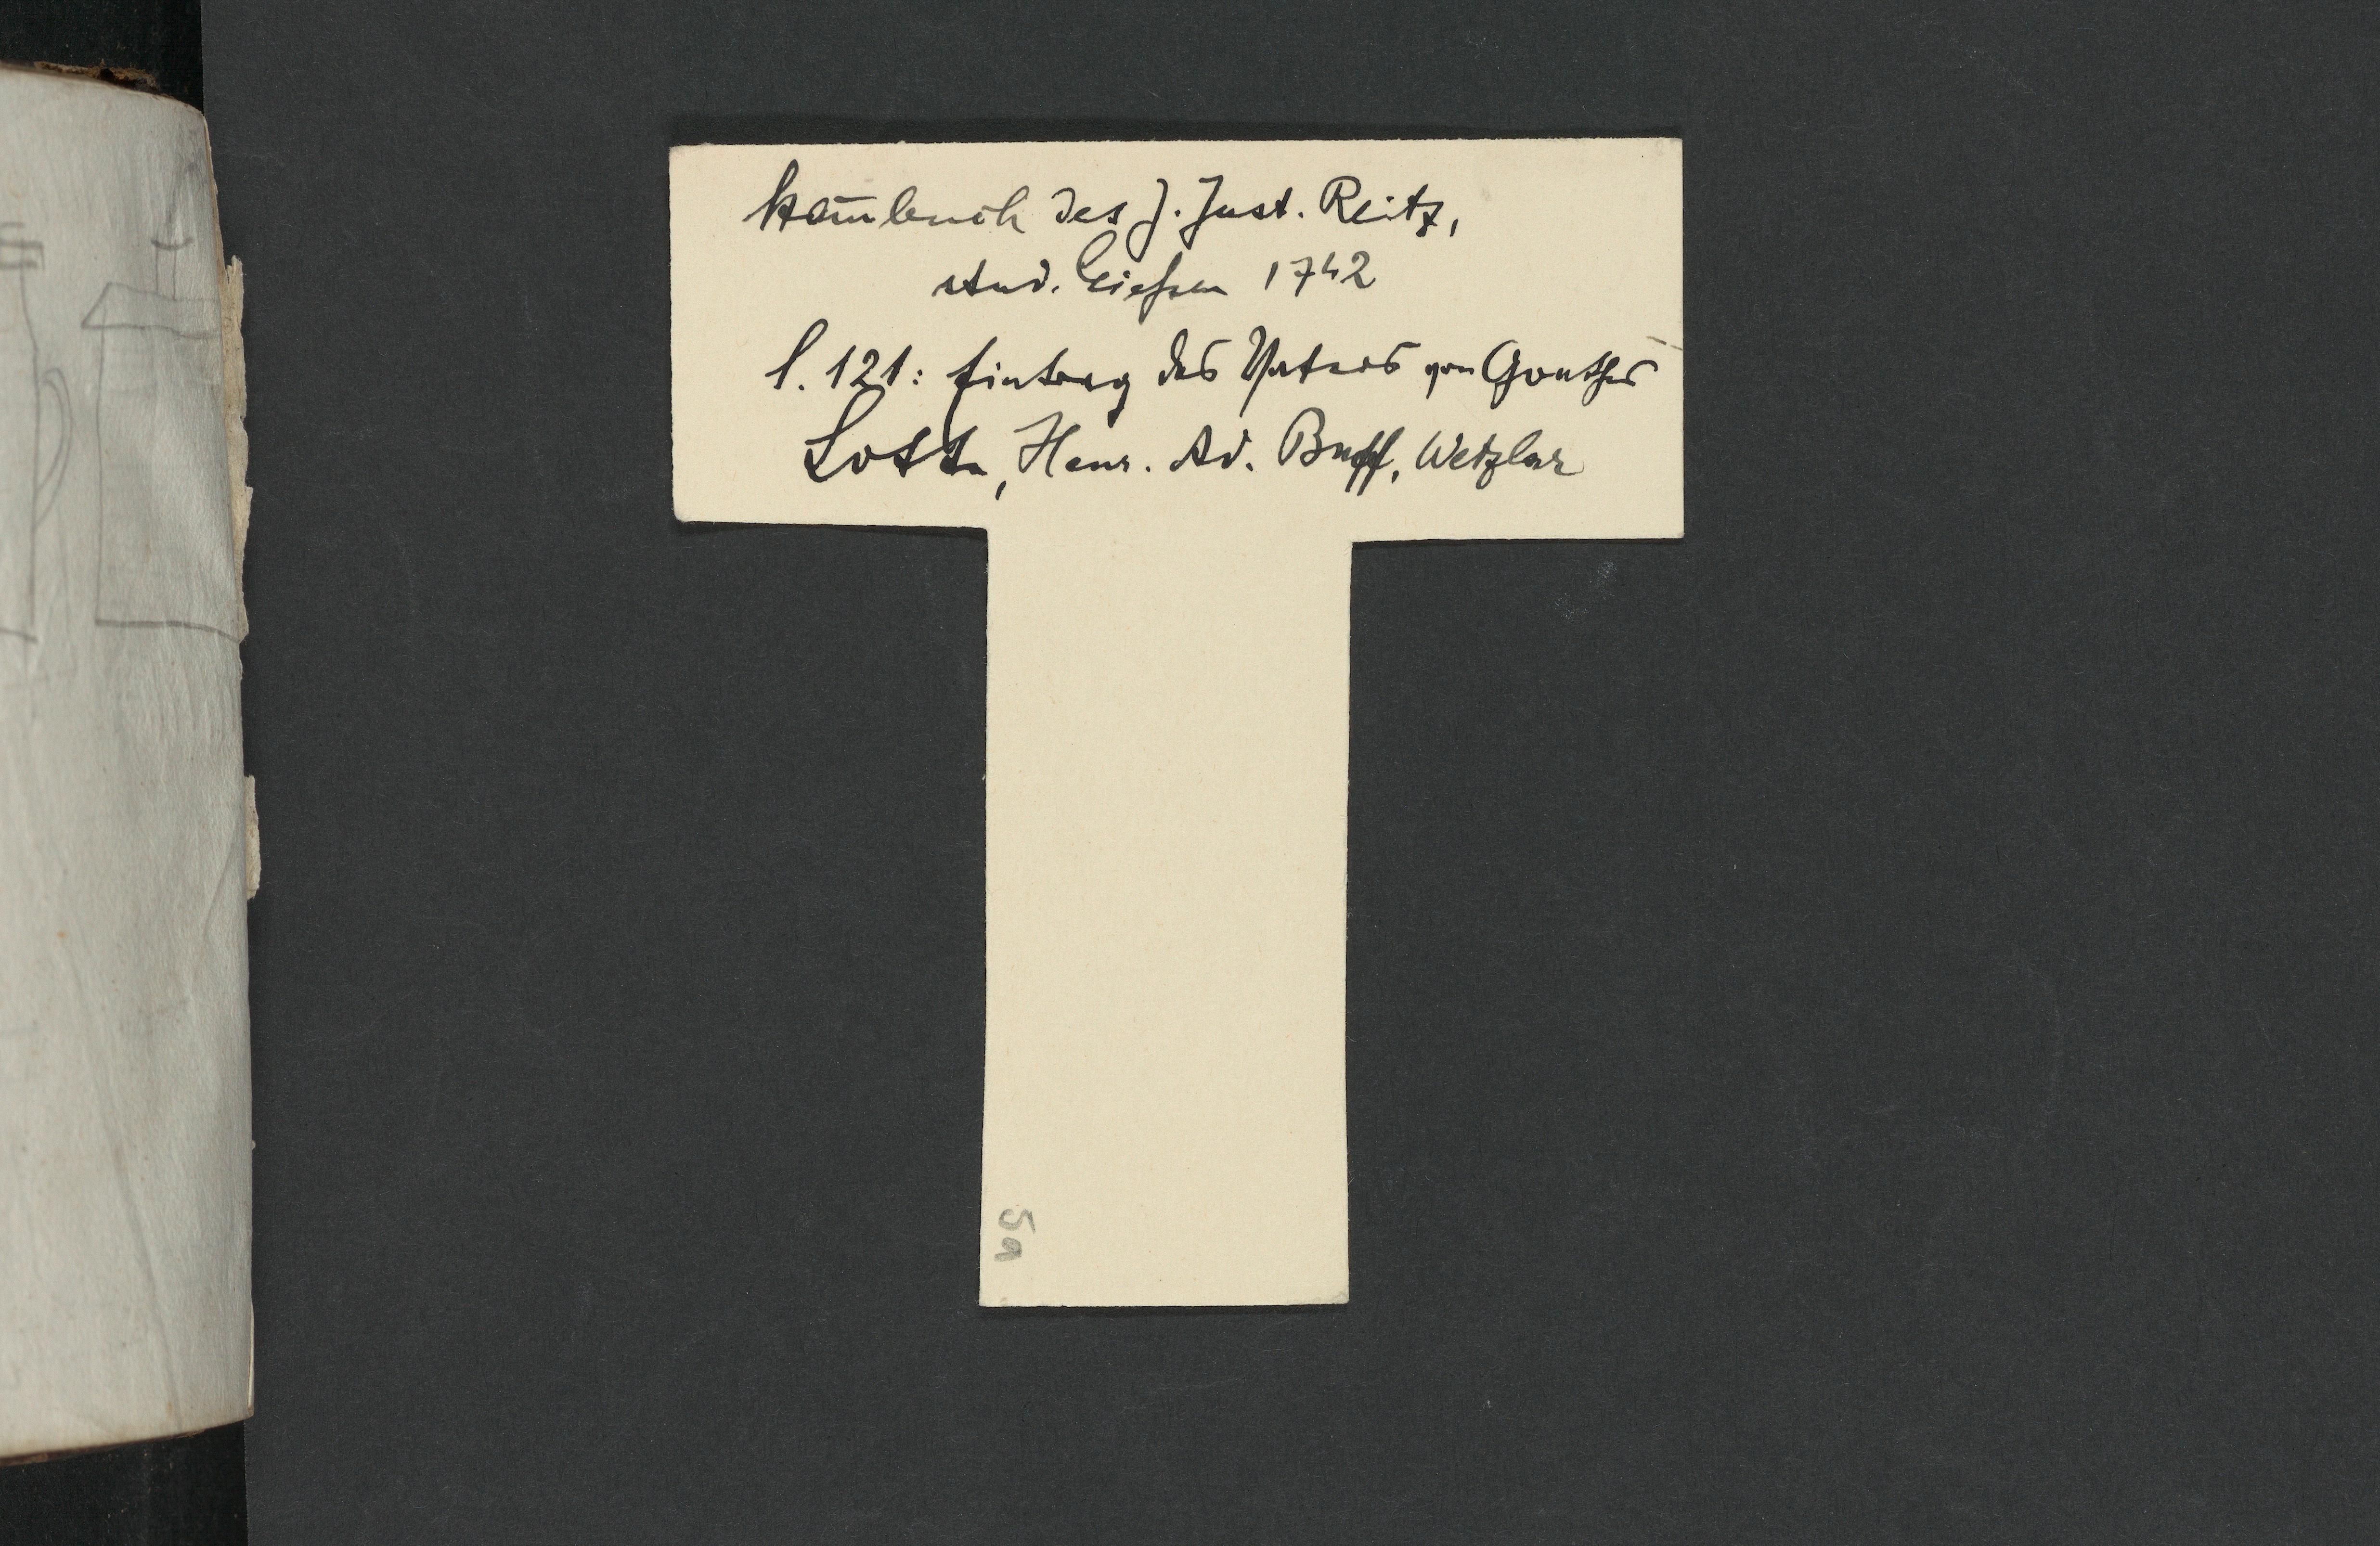 Stam̄buch des J. Just. Reitz,
stud. Gießen 1742
S. 121: Eintrag des Vaters von Goethes
Lotte, Henr. Ad. Buff, Wetzlar
5a